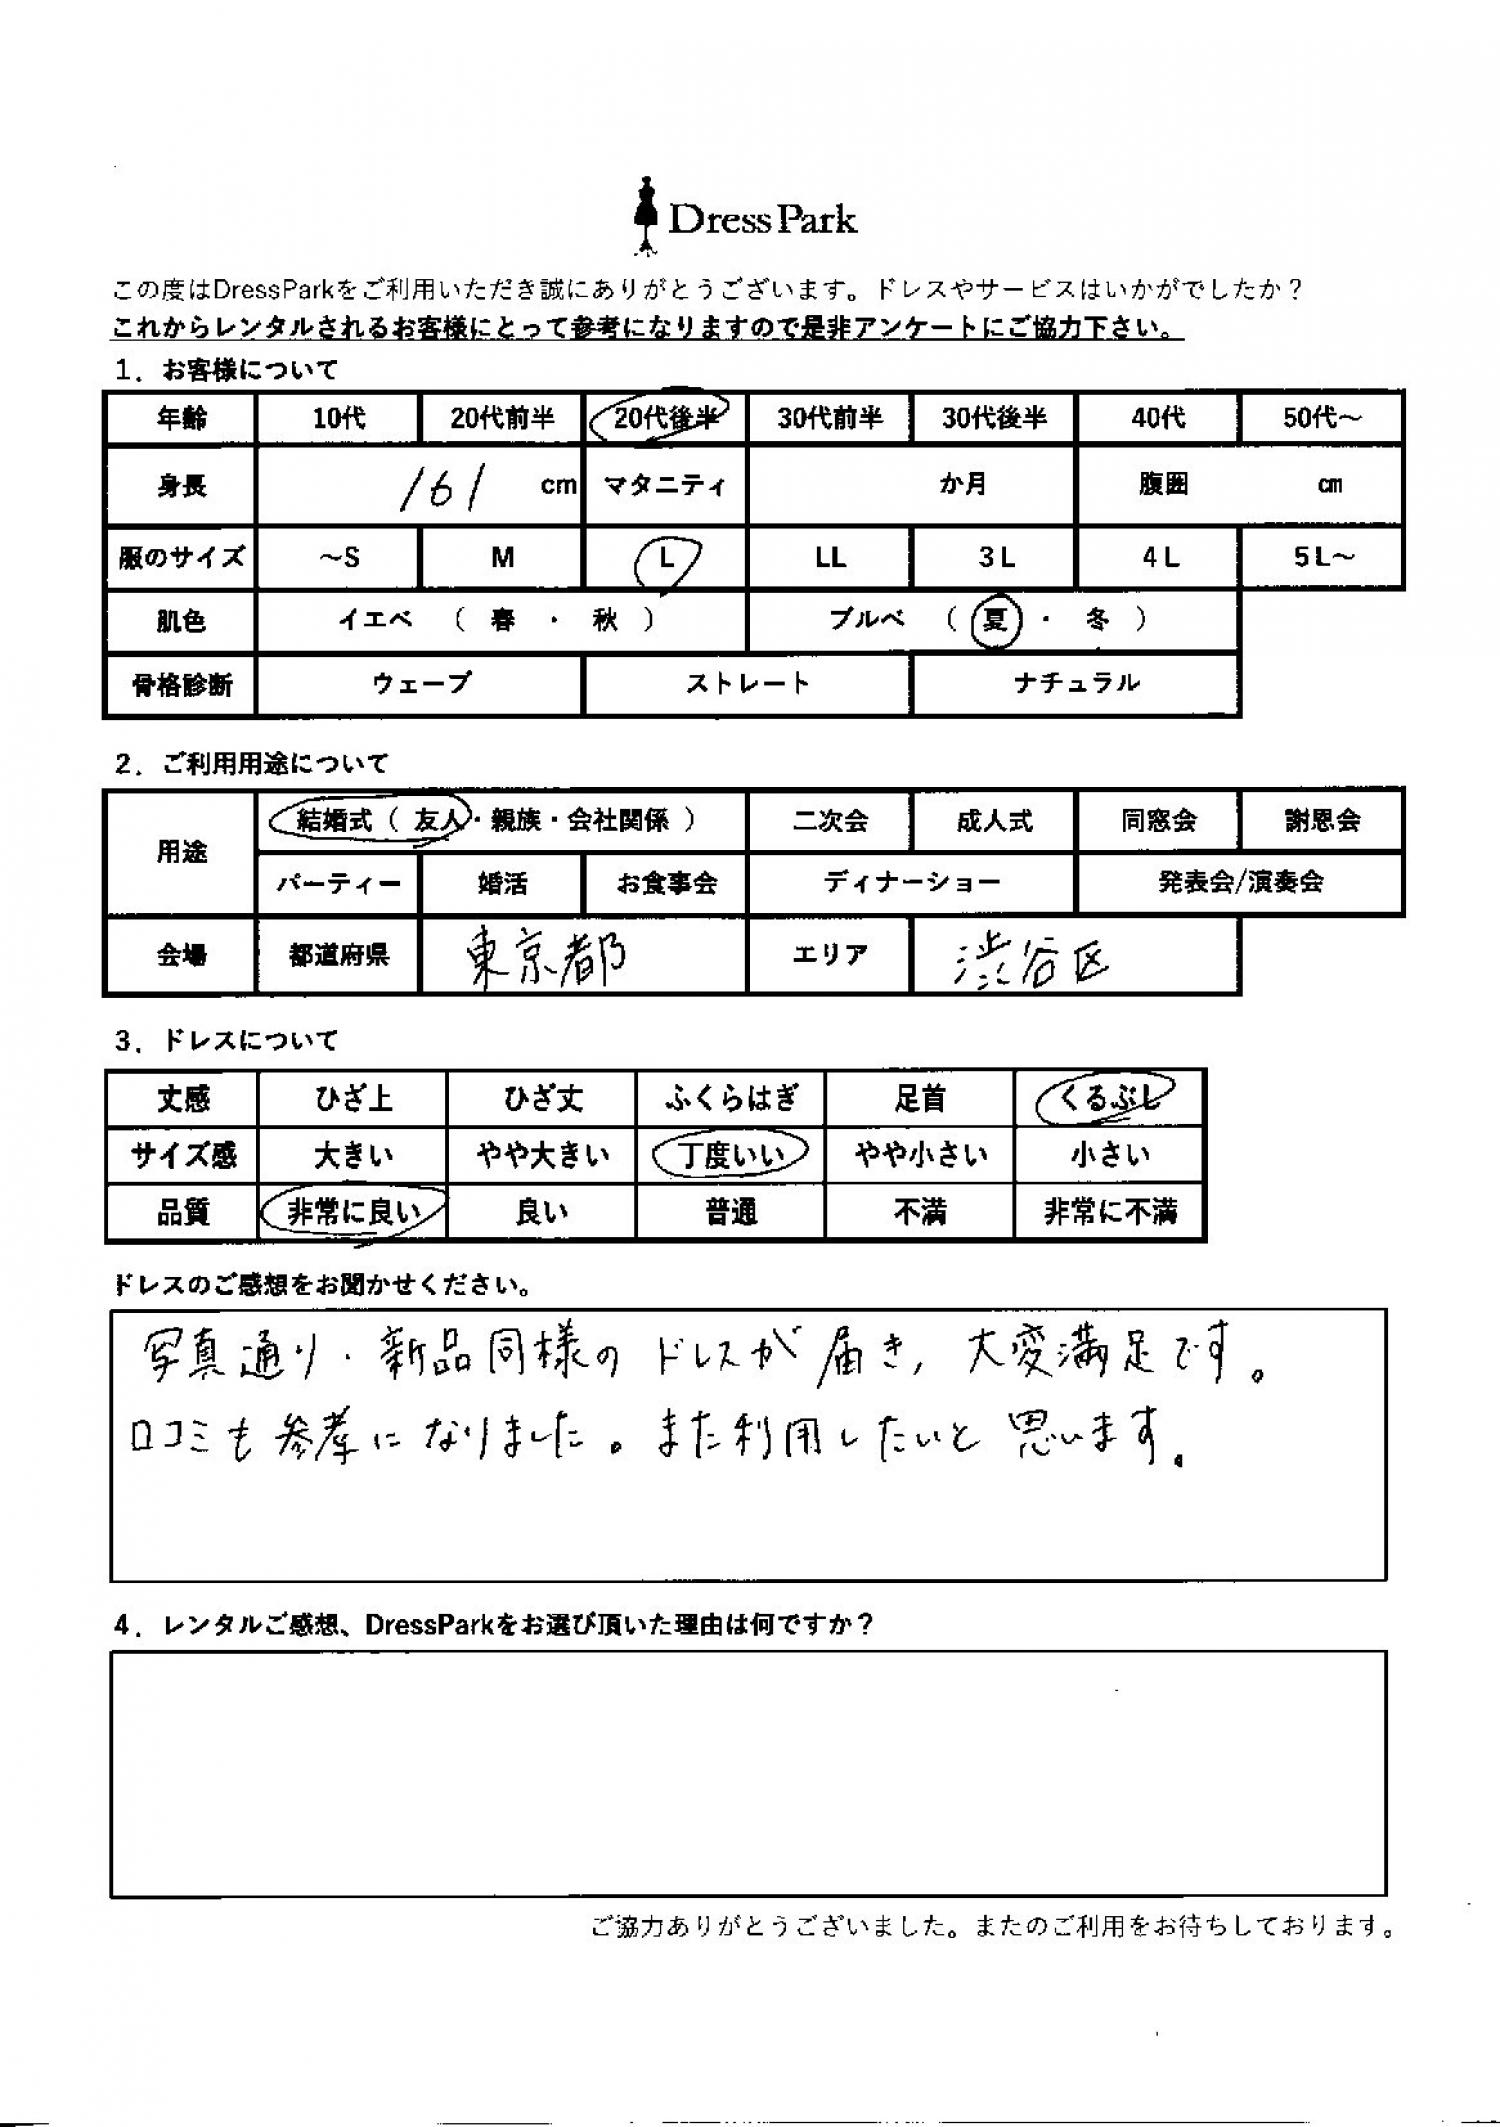 DressPark
この度はDressParkをご利用いただき誠にありがとうございます。ドレスやサービスはいかがでしたか？
これからレンタルされるお客様にとって参考になりますので是非アンケートにご協力下さい。
１．お客様について
年齢 10代 20代前半 20代後半 30代前半 30代後半 40代 50代～
身長 161 cm マタニティ か月 腹囲 ㎝
服のサイズ ～S M L LL 3L 4L 5L～
肌色 イエベ （ 春 ・ 秋 ） ブルベ （ 夏 ・ 冬 ）
骨格診断 ウェーブ ストレート ナチュラル
２．ご利用用途について
用途 結婚式（ 友人・親族・会社関係 ） 二次会 成人式 同窓会 謝恩会
パーティー 婚活 お食事会 ディナーショー 発表会/演奏会
会場 都道府県 東京都 エリア 渋谷区
３．ドレスについて
丈感 ひざ上 ひざ丈 ふくらはぎ 足首 くるぶし
サイズ感 大きい やや大きい 丁度いい やや小さい 小さい
品質 非常に良い 良い 普通 不満 非常に不満
ドレスのご感想をお聞かせください。
写真通り・新品同様の ドレスが 届き, 大変満足です。
口コミも参考になりました。また利用したいと思います。
４．レンタルご感想、DressParkをお選び頂いた理由は何ですか？
ご協力ありがとうございました。またのご利用をお待ちしております。